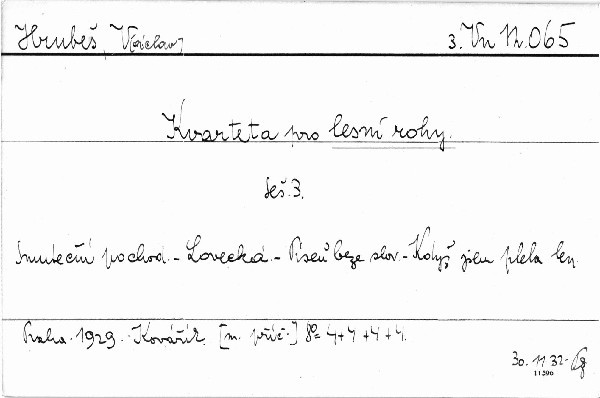 Hrubeš, Václav, 3. Vn N.065
Kvarteta pro lesní rohy.
seš. 3.
Smuteční pochod. - Lovecká. - Píseň beze slov. - Když jsem plela len.
Praha. 1929. Kovářík. [m. příč.] 8° = 4+4+4+4.
30. 11 32.
11396